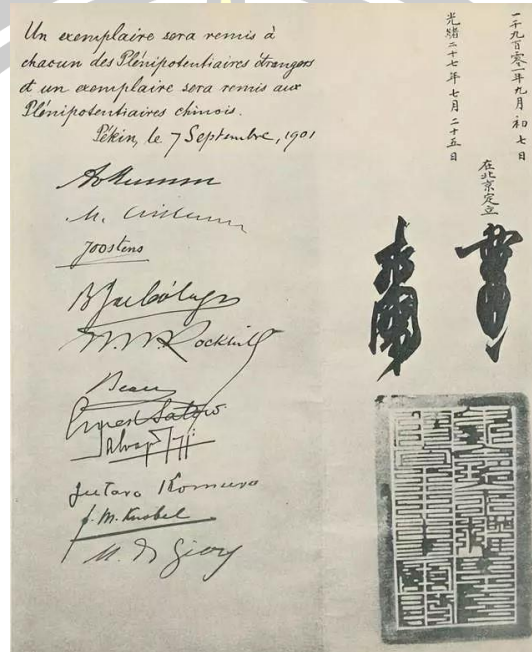 Un exemplaire sera remis à
chacun des Plénipotentiaires étrangers
et un exemplaire sera remis aux
Plénipotentiaires chinois.
Pékin, le 7 Septembre, 1901
Joostens
W. W. Rockhill
Beau
Ernest Satow
Jutaro Komura
F. M. Knobel
M. de Giers
一千九百零一年九月初七日
光緒二十七年七月二十五日
在北京定立